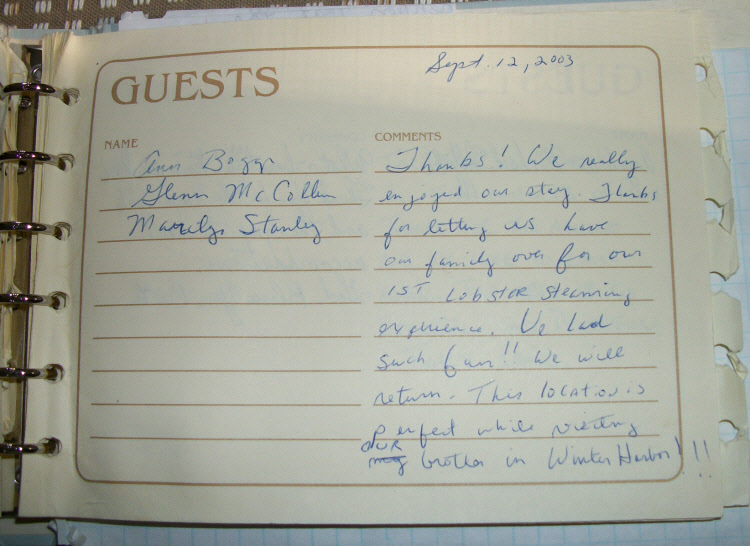 Sept. 12, 2003
GUESTS
NAME
Ann Boggs
Glenn McCollum
Marilyn Stanley
COMMENTS
Thanks! We really
enjoyed our stay. Thanks
for letting us have
our family over for our
1ST LOBSTER steaming
experience. We had
such fun!! We will
return. This location is
perfect while visiting
OUR
my brother in Winter Harbor!!!